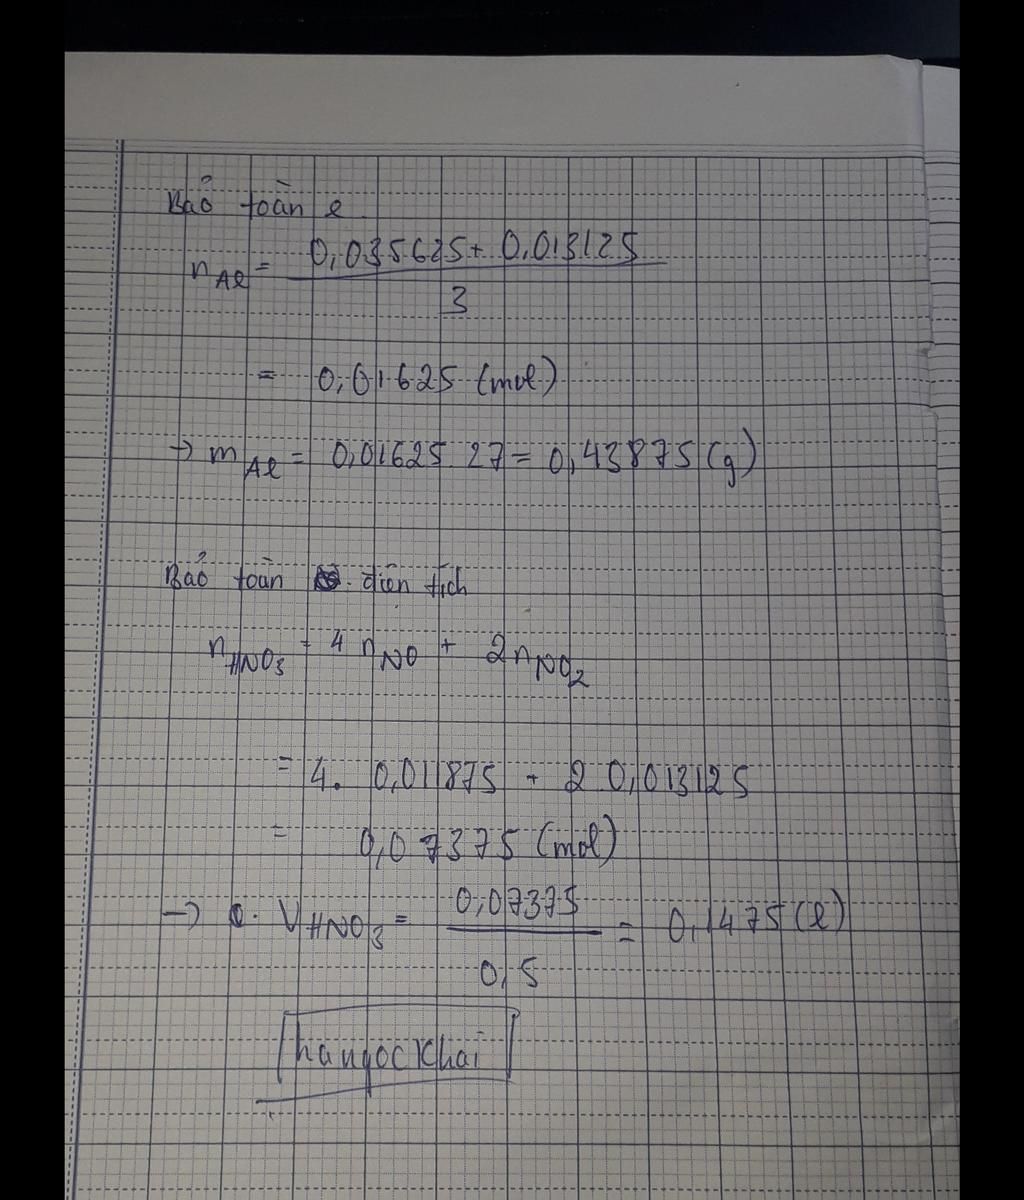 Bảo toàn e
n_Al = (0,035625 + 0,013125) / 3
= 0,01625 (mol)
→ m_Al = 0,01625 . 27 = 0,43875 (g)
Bảo toàn điện tích
n_HNO3 = 4 n_NO + 2 n_NO2
= 4. 0,011875 + 2 0,013125
= 0,07375 (mol)
→ V_HNO3 = 0,07375 / 0,5 = 0,1475 (l)
hangockhai